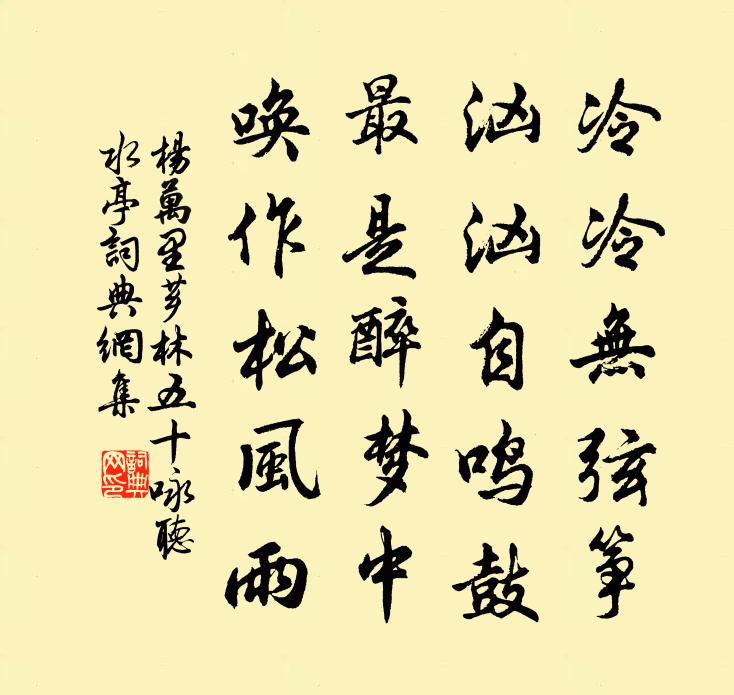 冷冷無弦箏
汹汹自鸣鼓
最是醉梦中
喚作松風雨
楊萬里芗林五十咏聽
水亭詞典網集
詞典网印